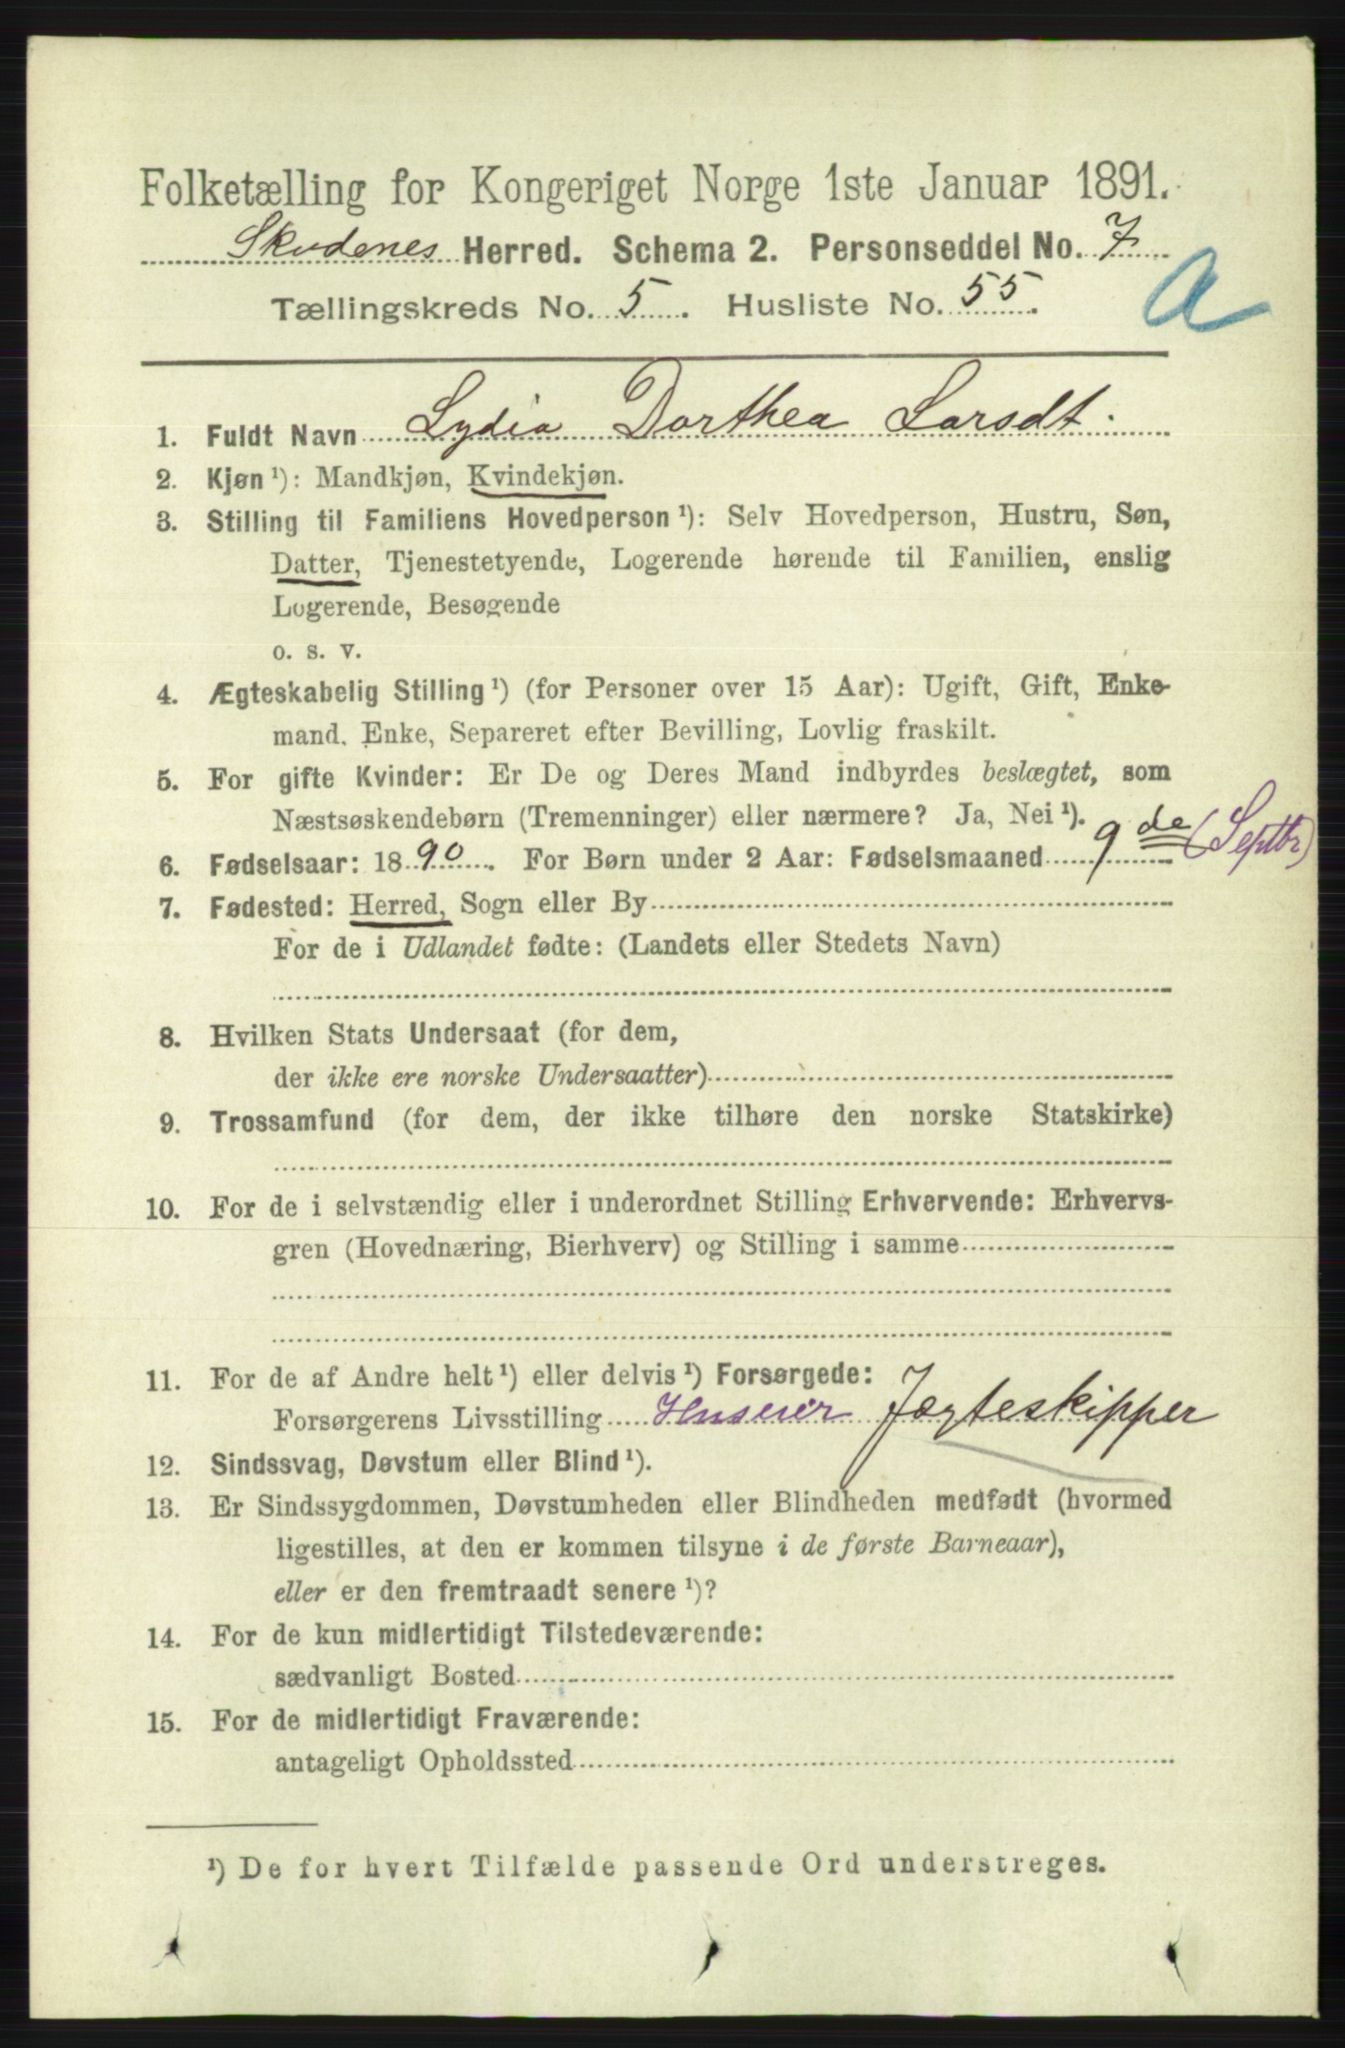 Folketælling for Kongeriget Norge 1ste Januar 1891.
Skudenes Herred. Schema 2. Personseddel No. 7
Tællingskreds No. 5. Husliste No. 55.
a
1. Fuldt Navn Lydia Dorthea Larsdt.
2. Kjøn ¹): Mandkjøn, Kvindekjøn.
3. Stilling til Familiens Hovedperson ¹): Selv Hovedperson, Hustru, Søn,
Datter, Tjenestetyende, Logerende hørende til Familien, enslig
Logerende, Besøgende
o. s. v.
4. Ægteskabelig Stilling ¹) (for Personer over 15 Aar): Ugift, Gift, Enke-
mand, Enke, Separeret efter Bevilling, Lovlig fraskilt.
5. For gifte Kvinder: Er De og Deres Mand indbyrdes beslægtet, som
Næstsøskendebørn (Tremenninger) eller nærmere? Ja, Nei ¹).
6. Fødselsaar: 1890. For Børn under 2 Aar: Fødselsmaaned 9de (Septbr)
7. Fødested: Herred, Sogn eller By
For de i Udlandet fødte: (Landets eller Stedets Navn)
8. Hvilken Stats Undersaat (for dem,
der ikke ere norske Undersaatter)
9. Trossamfund (for dem, der ikke tilhøre den norske Statskirke)
10. For de i selvstændig eller i underordnet Stilling Erhvervende: Erhvervs-
gren (Hovednæring, Bierhverv) og Stilling i samme
11. For de af Andre helt ¹) eller delvis ¹) Forsørgede:
Forsørgerens Livsstilling Huseier Jægteskipper
12. Sindssvag, Døvstum eller Blind ¹).
13. Er Sindssygdommen, Døvstumheden eller Blindheden medfødt (hvormed
ligestilles, at den er kommen tilsyne i de første Barneaar),
eller er den fremtraadt senere ¹)?
14. For de kun midlertidigt Tilstedeværende:
sædvanligt Bosted
15. For de midlertidigt Fraværende:
antageligt Opholdssted
¹) De for hvert Tilfælde passende Ord understreges.